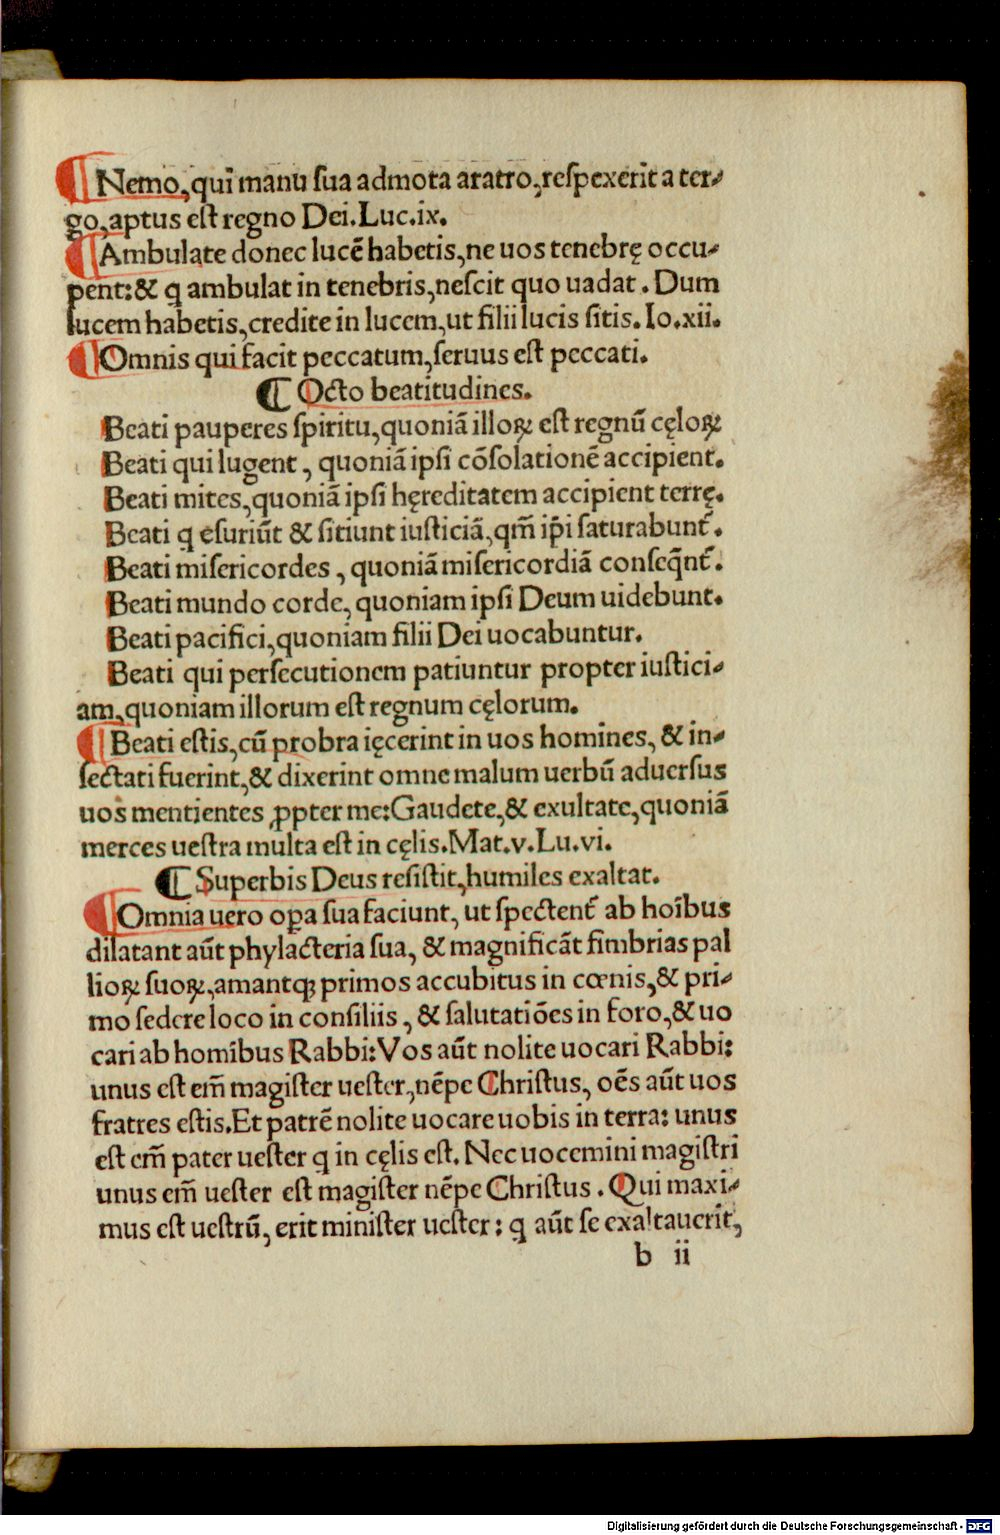 ¶ Nemo, qui manu sua admota aratro, respexerit a ter-
go, aptus est regno Dei. Luc. ix.
¶ Ambulate donec lucē habetis, ne uos tenebrę occu-
pent: & q ambulat in tenebris, nescit quo uadat. Dum
lucem habetis, credite in lucem, ut filii lucis sitis. Io. xii.
¶ Omnis qui facit peccatum, seruus est peccati.
¶ Octo beatitudines.
Beati pauperes spiritu, quoniā illoꝝ est regnū cęloꝝ
Beati qui lugent, quoniā ipsi cōsolationē accipient.
Beati mites, quoniā ipsi hęreditatem accipient terrę.
Beati q esuriūt & sitiunt iusticiā, qm̄ ip̄i saturabunt᷑.
Beati misericordes, quoniā misericordiā conseq̄nt᷑.
Beati mundo corde, quoniam ipsi Deum uidebunt.
Beati pacifici, quoniam filii Dei uocabuntur.
Beati qui persecutionem patiuntur propter iustici-
am, quoniam illorum est regnum cęlorum.
¶ Beati estis, cū probra ięcerint in uos homines, & in-
sectati fuerint, & dixerint omne malum uerbū aduersus
uos mentientes ꝓpter me: Gaudete, & exultate, quoniā
merces uestra multa est in cęlis. Mat. v. Lu. vi.
¶ Superbis Deus resistit, humiles exaltat.
¶ Omnia uero oꝑa sua faciunt, ut spectent᷑ ab hoībus
dilatant aūt phylacteria sua, & magnificāt fimbrias pal
lioꝝ suoꝝ, amantqꝫ primos accubitus in cœnis, & pri-
mo sedere loco in consiliis, & salutatiōes in foro, & uo
cari ab homibus Rabbi: Vos aūt nolite uocari Rabbi:
unus est em̄ magister uester, nēpe Christus, oēs aūt uos
fratres estis. Et patrē nolite uocare uobis in terra: unus
est em̄ pater uester q in cęlis est. Nec uocemini magistri
unus em̄ uester est magister nēpe Christus. Qui maxi-
mus est uestrū, erit minister uester: q aūt se exaltauerit,
b ii
Digitalisierung gefördert durch die Deutsche Forschungsgemeinschaft - DFG